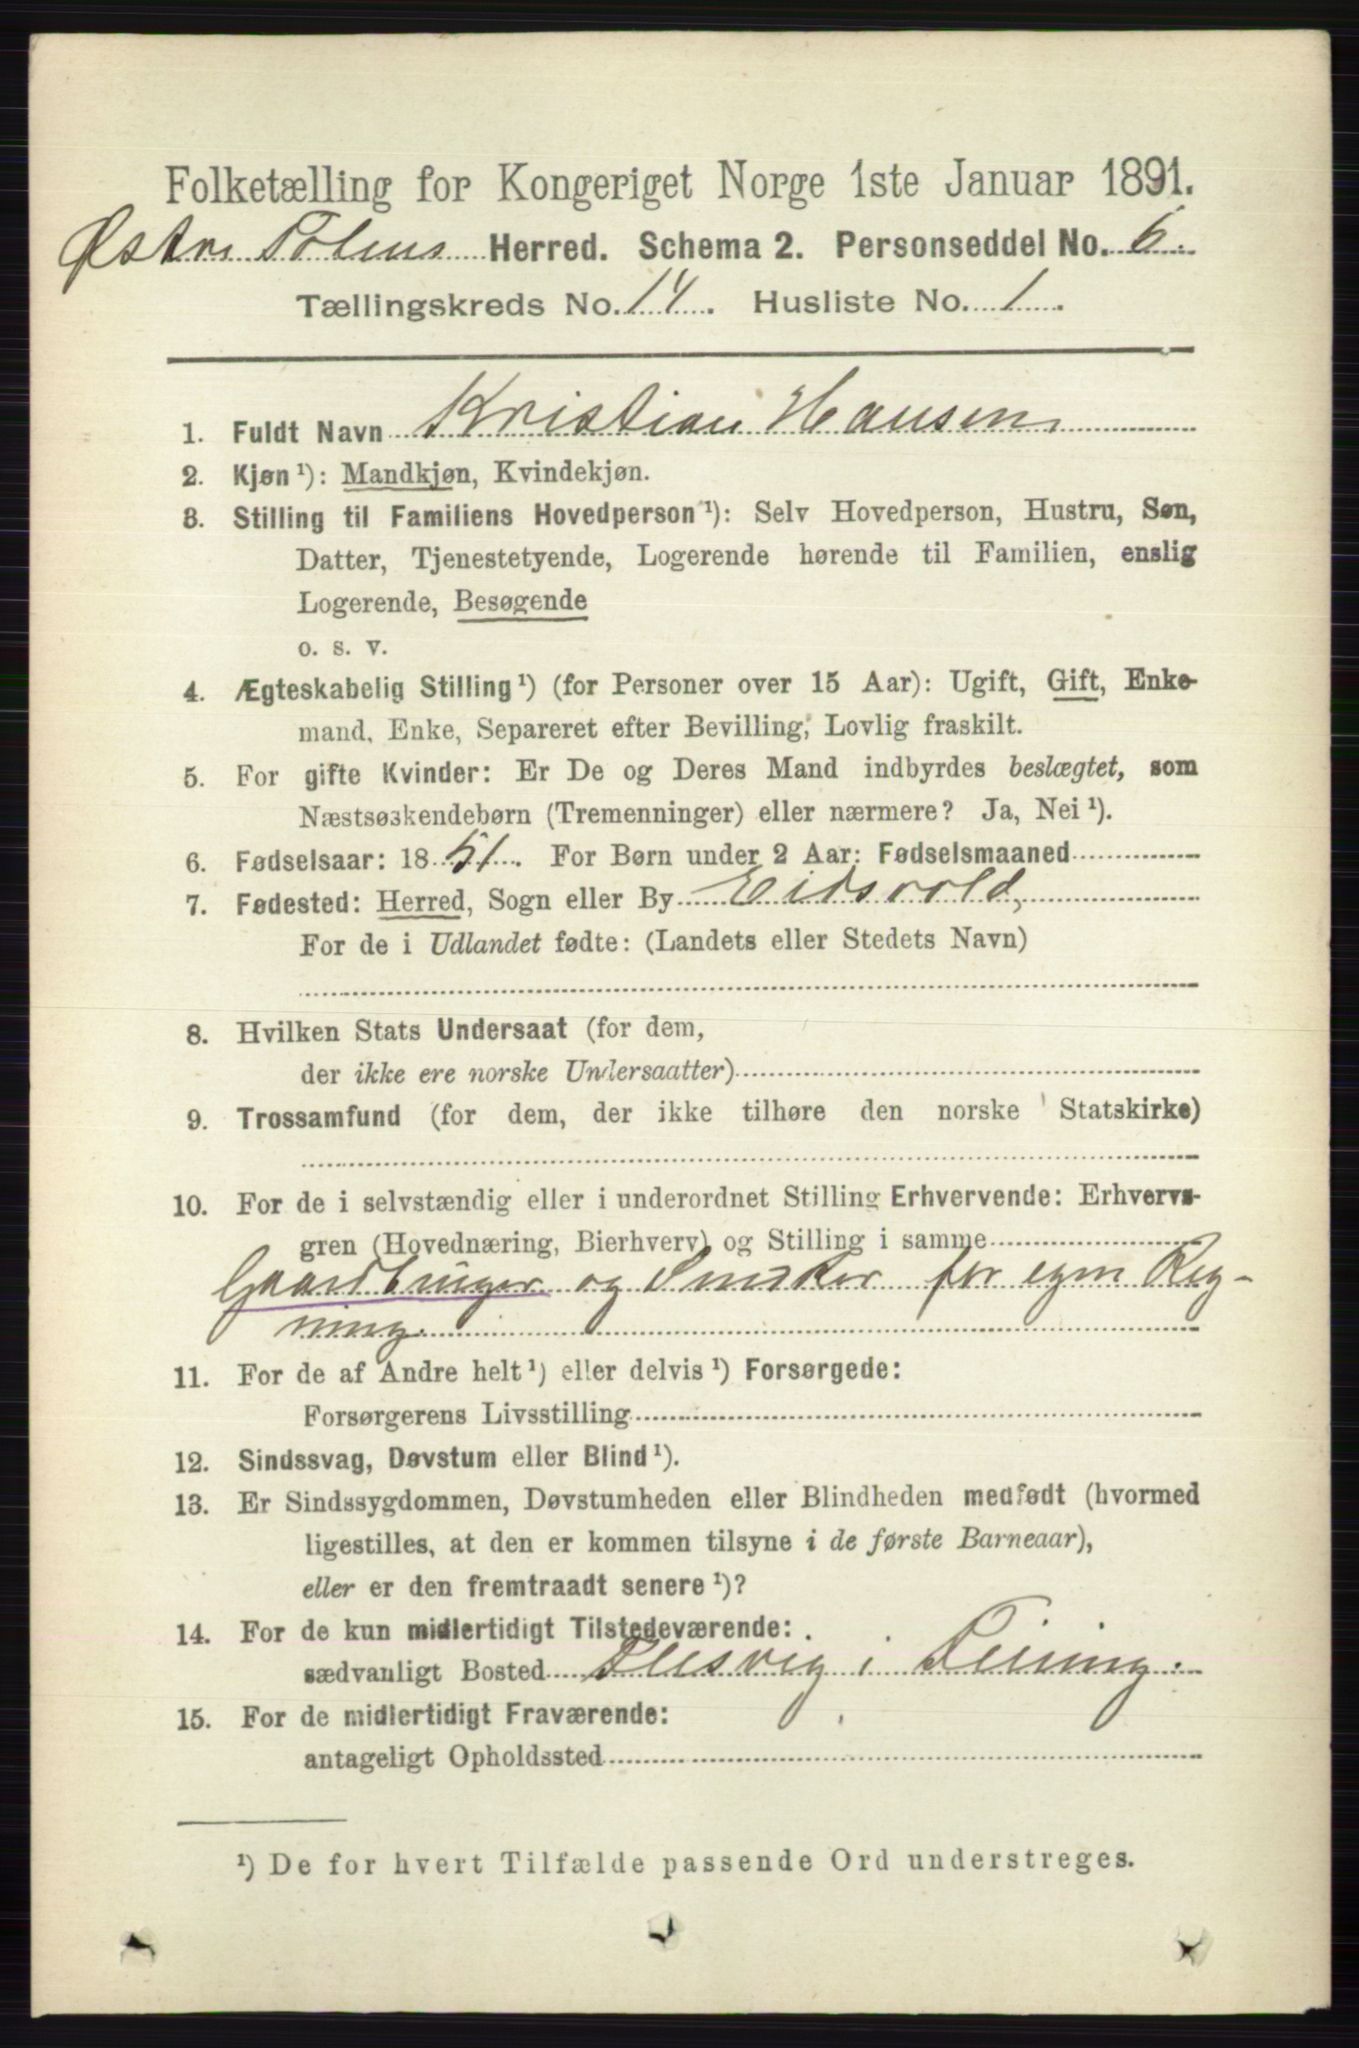 Folketælling for Kongeriget Norge 1ste Januar 1891.
Østre Totens Herred. Schema 2. Personseddel No. 6.
Tællingskreds No. 14. Husliste No. 1.
1. Fuldt Navn Kristian Hansen
2. Kjøn ¹): Mandkjøn, Kvindekjøn.
3. Stilling til Familiens Hovedperson ¹): Selv Hovedperson, Hustru, Søn,
Datter, Tjenestetyende, Logerende hørende til Familien, enslig
Logerende, Besøgende
o. s. v.
4. Ægteskabelig Stilling ¹) (for Personer over 15 Aar): Ugift, Gift, Enke-
mand, Enke, Separeret efter Bevilling, Lovlig fraskilt.
5. For gifte Kvinder: Er De og Deres Mand indbyrdes beslægtet, som
Næstsøskendebørn (Tremenninger) eller nærmere? Ja, Nei ¹).
6. Fødselsaar: 1851. For Børn under 2 Aar: Fødselsmaaned
7. Fødested: Herred, Sogn eller By Eidsvold,
For de i Udlandet fødte: (Landets eller Stedets Navn)
8. Hvilken Stats Undersaat (for dem,
der ikke ere norske Undersaatter)
9. Trossamfund (for dem, der ikke tilhøre den norske Statskirke)
10. For de i selvstændig eller i underordnet Stilling Erhvervende: Erhvervs-
gren (Hovednæring, Bierhverv) og Stilling i samme
Gaardbruger og Snedker for egen Reg-
ning.
11. For de af Andre helt ¹) eller delvis ¹) Forsørgede:
Forsørgerens Livsstilling
12. Sindssvag, Døvstum eller Blind ¹).
13. Er Sindssygdommen, Døvstumheden eller Blindheden medfødt (hvormed
ligestilles, at den er kommen tilsyne i de første Barneaar),
eller er den fremtraadt senere ¹)?
14. For de kun midlertidigt Tilstedeværende:
sædvanligt Bosted i Feiring.
15. For de midlertidigt Fraværende:
antageligt Opholdssted
¹) De for hvert Tilfælde passende Ord understreges.